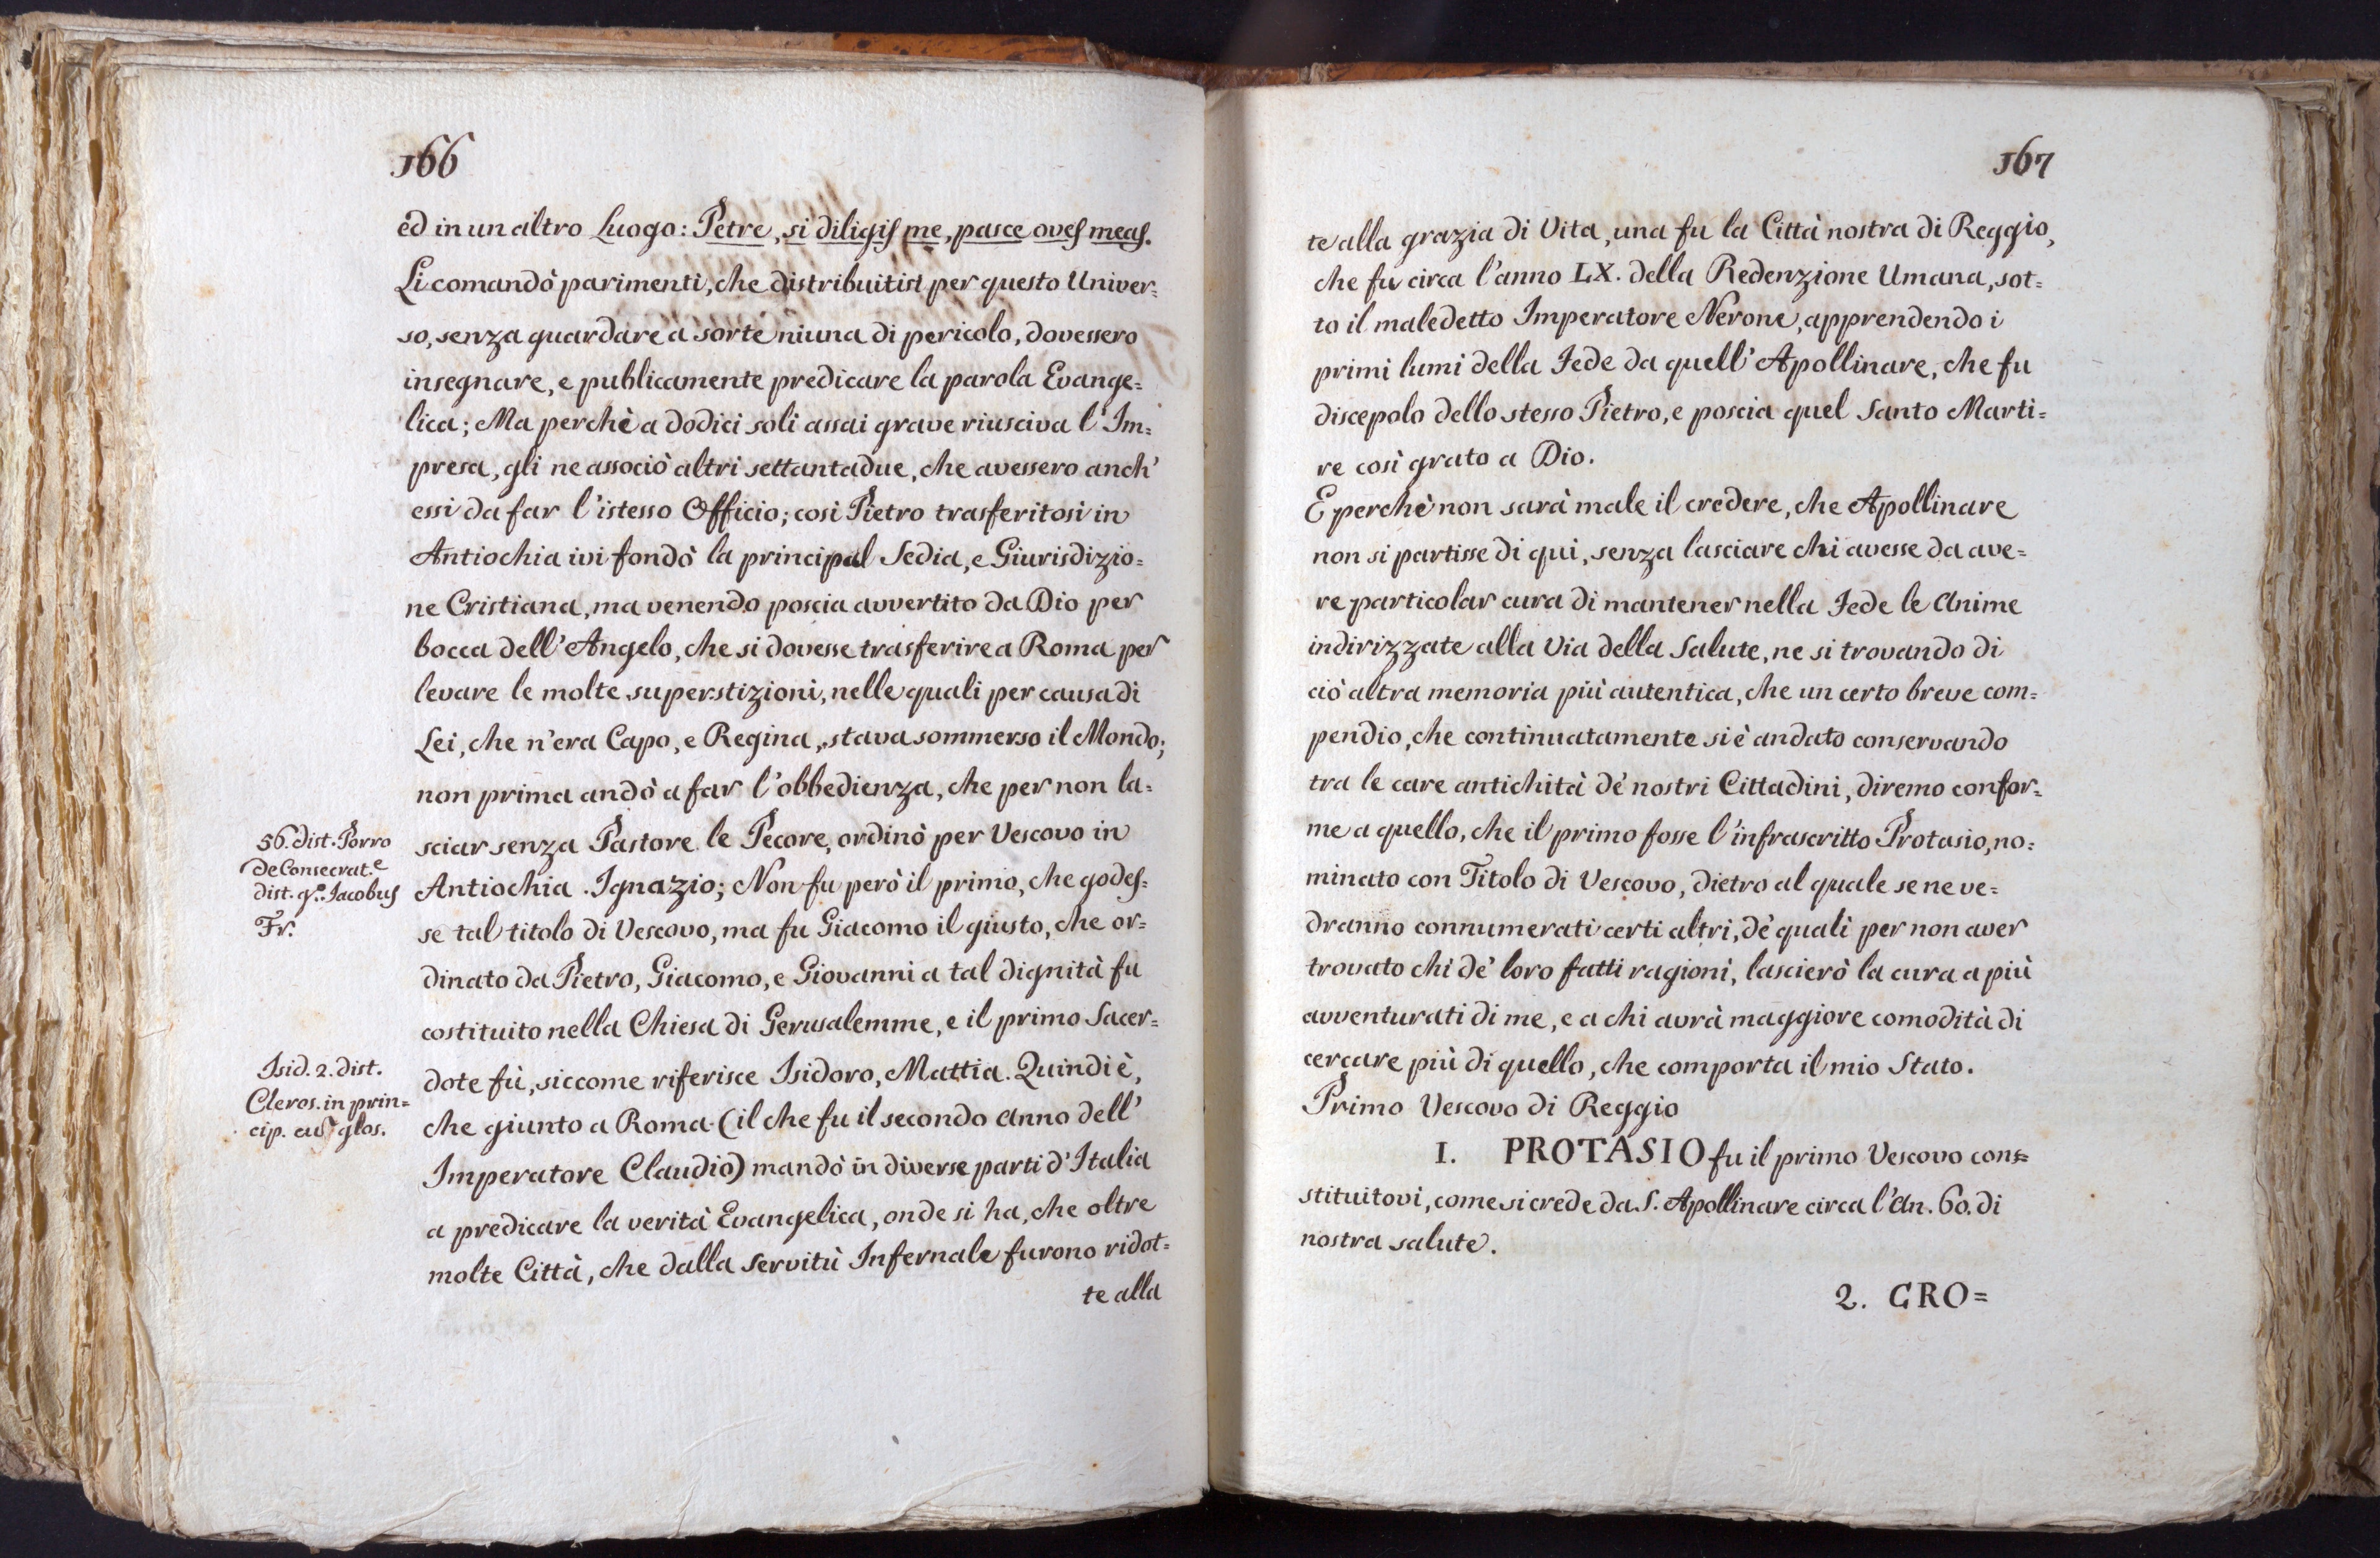 166
ed in un altro Luogo: Petre, si diligis me, pasce oves meas.
Li comandò parimenti, che distribuitisi per questo Univer=
so, senza guardare a sorte niuna di pericolo, dovessero
insegnare, e publicamente predicare la parola Evange=
lica; Ma perchè a dodici soli assai grave riusciva l'Im=
presa, gli ne associò altri settantadue, che avessero anch'
essi da far l'istesso Officio; così Pietro trasferitosi in
Antiochia ivi fondò la principal Sedia, e Giurisdizio=
ne Cristiana, ma venendo poscia avvertito da Dio per
bocca dell'Angelo, che si dovesse trasferire a Roma per
levare le molte superstizioni, nelle quali per causa di
Lei, che n'era Capo, e Regina, stava sommerso il Mondo;
non prima andò a far l'obbedienza, che per non la=
sciar senza Pastore le Pecore, ordinò per Vescovo in
Antiochia Ignazio; Non fu però il primo, che godes=
se tal titolo di Vescovo, ma fu Giacomo il giusto, che or=
dinato da Pietro, Giacomo, e Giovanni a tal dignità fu
costituito nella Chiesa di Gerusalemme, e il primo Sacer=
dote fù, siccome riferisce Isidoro, Mattia. Quindi è,
che giunto a Roma (il che fu il secondo anno dell'
Imperatore Claudio) mandò in diverse parti d'Italia
a predicare la verità Evangelica, onde si ha, che oltre
molte Città, che dalla servitù Infernale furono ridot=
te alla
56. dist. Porro
de Consecrat.e
dist. q.o Jacobus
Fr.
Isid. 2. dist.
Cleros. in prin=
cip. glos.
167
te alla grazia di Vita, una fu la Città nostra di Reggio,
che fu circa l'anno LX. della Redenzione Umana, sot=
to il maledetto Imperatore Nerone, apprendendo i
primi lumi della Fede da quell'Apollinare, che fu
discepolo dello stesso Pietro, e poscia quel Santo Marti=
re così grato a Dio.
E perchè non sarà male il credere, che Apollinare
non si partisse di qui, senza lasciare chi avesse da ave=
re particolar cura di mantener nella Fede le Anime
indirizzate alla Via della Salute, ne si trovando di
ciò altra memoria più autentica, che un certo breve com=
pendio, che continuatamente si è andato conservando
tra le care antichità de' nostri Cittadini, diremo confor=
me a quello, che il primo fosse l'infrascritto Protasio, no=
minato con Titolo di Vescovo, dietro al quale se ne ve=
dranno connumerati certi altri, de' quali per non aver
trovato chi de' loro fatti ragioni, lascierò la cura a più
avventurati di me, e a chi avrà maggiore comodità di
cercare più di quello, che comporta il mio Stato.
Primo Vescovo di Reggio
1. PROTASIO fu il primo Vescovo cons=
stituitovi, come si crede da S. Apollinare circa l'An. 60. di
nostra salute.
2. GRO=